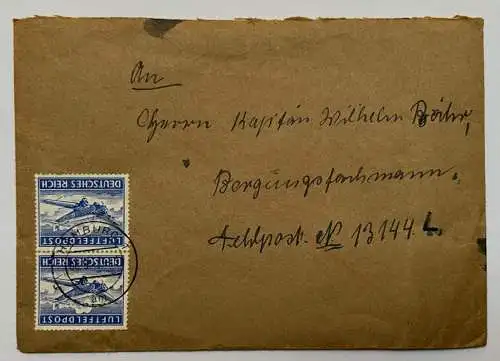 An
Herrn Kapitän Wilhelm
Bergungsfachmann.
Feldpost № 13144 L.
DEUTSCHES REICH
LUFTFELDPOST
DEUTSCHES REICH
LUFTFELDPOST